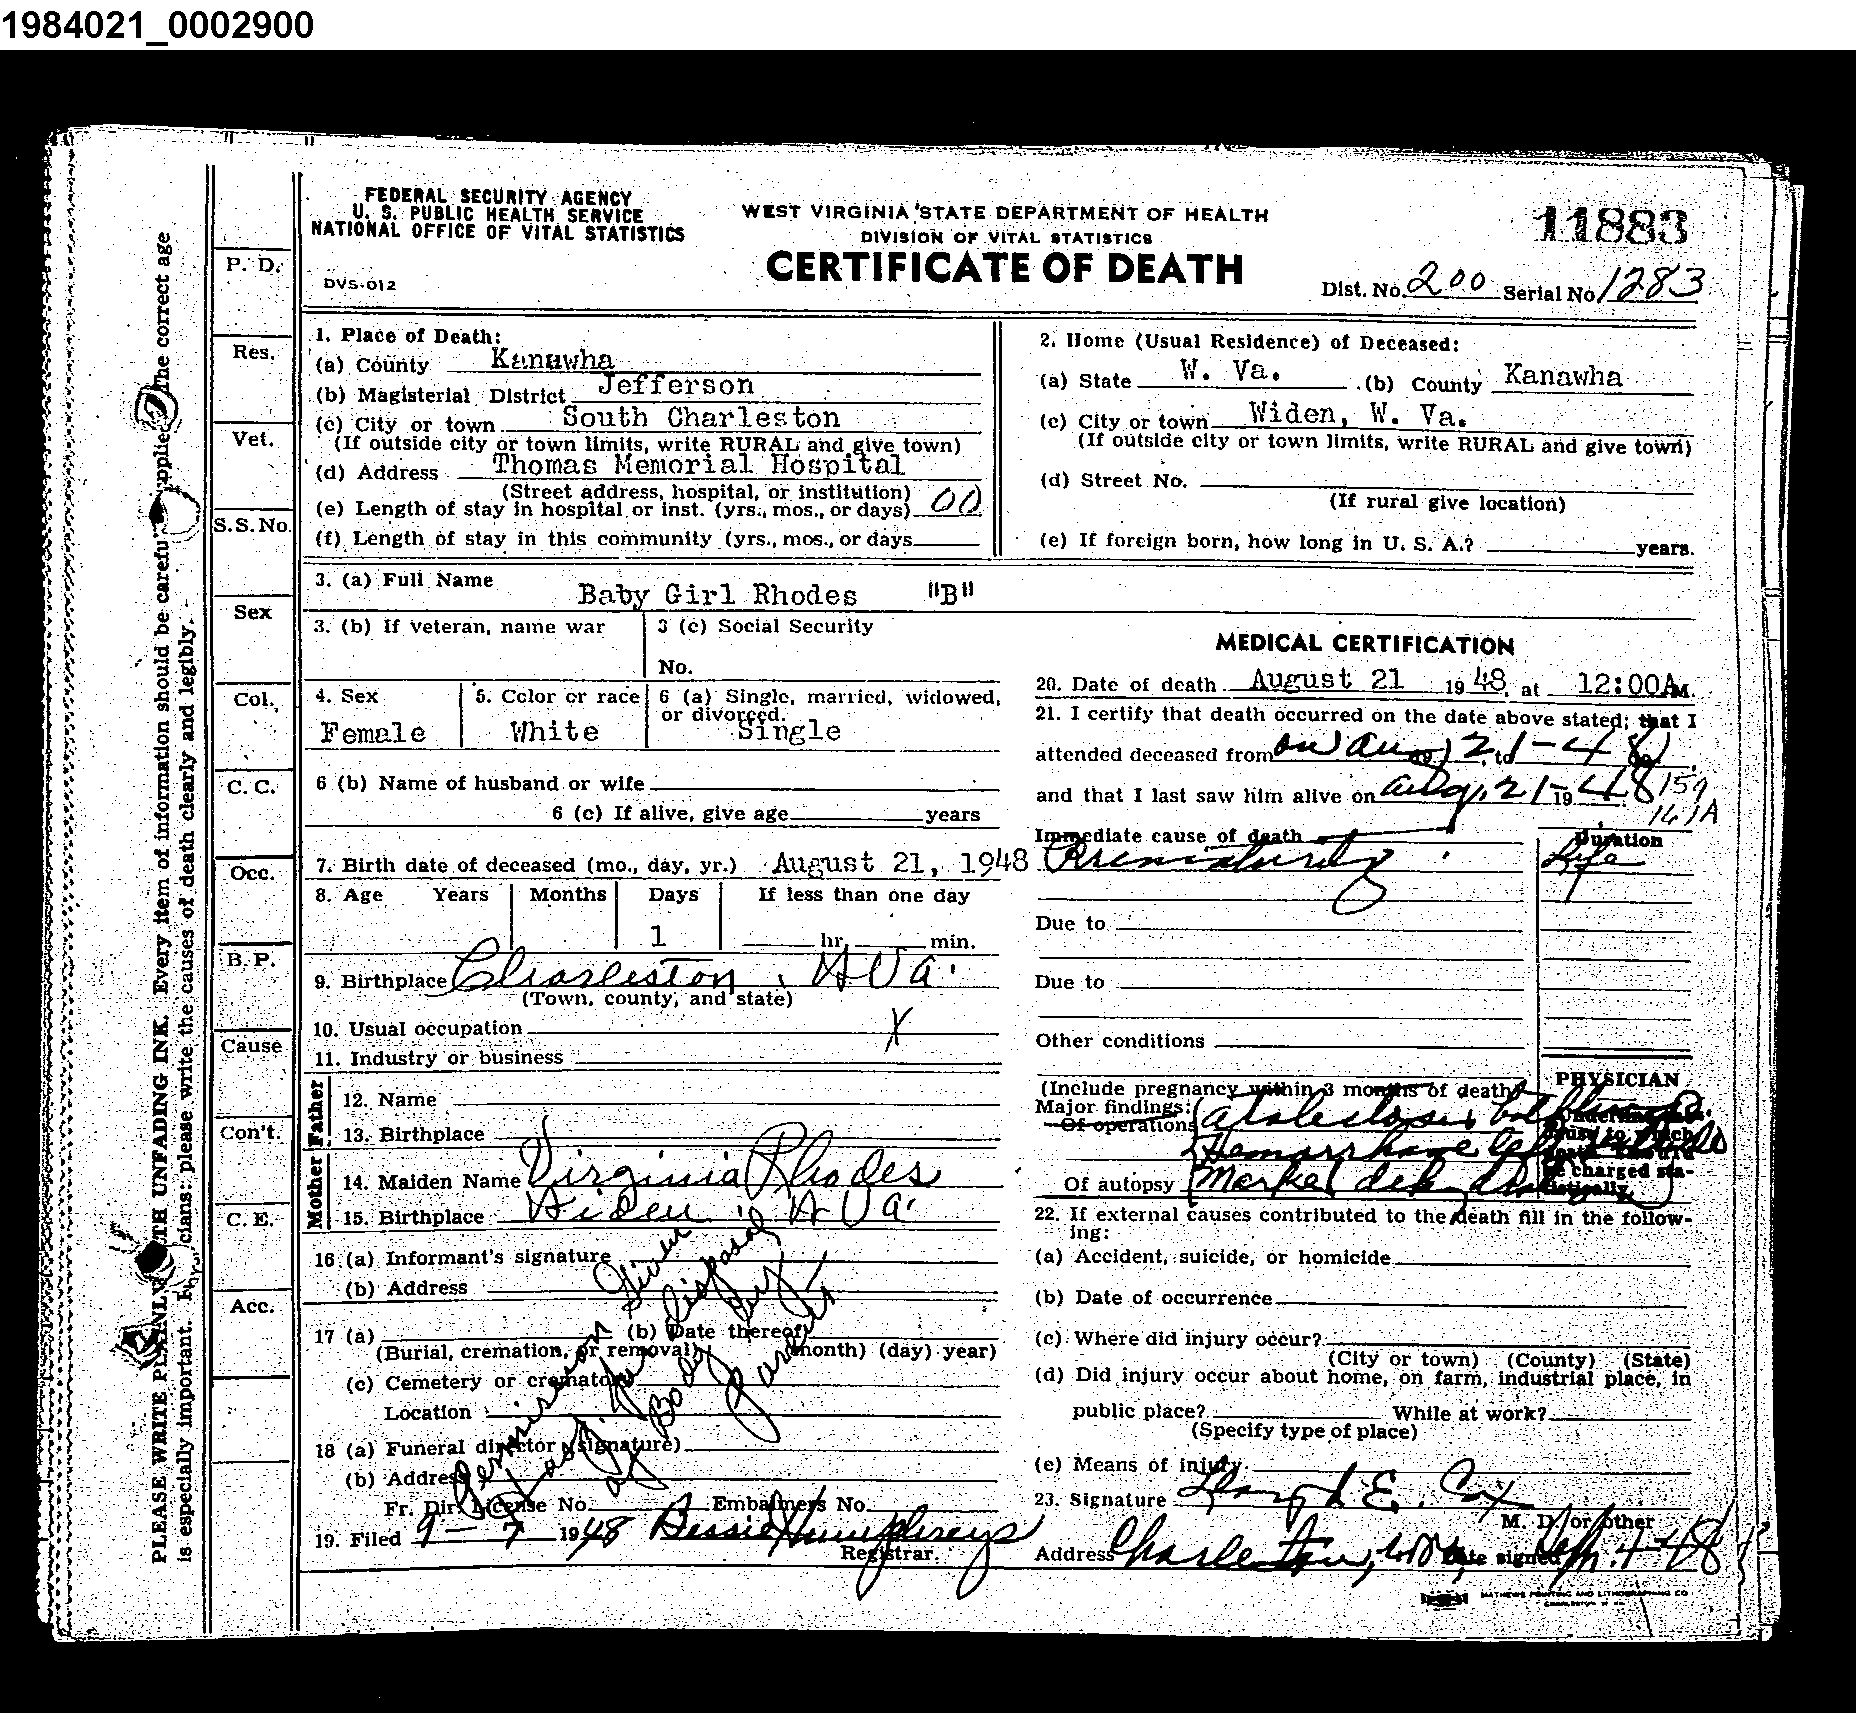 1984021_0002900
FEDERAL SECURITY AGENCY
U. S. PUBLIC HEALTH SERVICE
NATIONAL OFFICE OF VITAL STATISTICS
DVS-012
WEST VIRGINIA STATE DEPARTMENT OF HEALTH
DIVISION OF VITAL STATISTICS
CERTIFICATE OF DEATH
11883
Dist. No. 200 Serial No. 1283
PLEASE WRITE PLAINLY WITH UNFADING INK. Every item of information should be carefully supplied. The correct age
is especially important. Physicians: please write the causes of death clearly and legibly.
P. D.
Res.
Vet.
S.S. No.
Sex
Col.
C. C.
Occ.
B. P.
Cause
Con't.
C. E.
Acc.
1. Place of Death:
(a) County Kanawha
(b) Magisterial District Jefferson
(c) City or town South Charleston
(If outside city or town limits, write RURAL and give town)
(d) Address Thomas Memorial Hospital
(Street address, hospital, or institution)
(e) Length of stay in hospital or inst. (yrs., mos., or days) 00
(f) Length of stay in this community (yrs., mos., or days
2. Home (Usual Residence) of Deceased:
(a) State W. Va. (b) County Kanawha
(c) City or town Widen, W. Va.
(If outside city or town limits, write RURAL and give town)
(d) Street No.
(If rural give location)
(e) If foreign born, how long in U. S. A.? years.
3. (a) Full Name Baby Girl Rhodes "B"
3. (b) If veteran, name war
3 (c) Social Security
No.
4. Sex Female
5. Color or race White
6 (a) Single, married, widowed,
or divorced. Single
6 (b) Name of husband or wife
6 (c) If alive, give age years
7. Birth date of deceased (mo., day, yr.) August 21, 1948
8. Age Years Months Days If less than one day
1 hr. min.
9. Birthplace Charleston, W Va.
(Town, county, and state)
10. Usual occupation X
11. Industry or business
Father
12. Name
13. Birthplace
Mother
14. Maiden Name Virginia Rhodes
15. Birthplace Widen, W Va.
16 (a) Informant's signature
(b) Address
17 (a) (b) Date thereof
(Burial, cremation, or removal) (month) (day) year)
(c) Cemetery or crematory
Location
18 (a) Funeral director (signature)
(b) Address
Fr. Dir. License No. Embalmers No.
Permission Given
Hosp. for disposal
of Body by
Parents
19. Filed 9-7 1948 Bessie Humphreys
Registrar.
MEDICAL CERTIFICATION
20. Date of death August 21 1948, at 12:00A M.
21. I certify that death occurred on the date above stated; that I
attended deceased from on Aug 21-48
and that I last saw him alive on Aug. 21-1948
159
161A
Immediate cause of death
Prematurity
Duration
Life
Due to
Due to
Other conditions
(Include pregnancy within 3 months of death)
Major findings:
Of operations
Hemorrhage
Of autopsy
PHYSICIAN
be charged sta-
tistically.
22. If external causes contributed to the death fill in the follow-
ing:
(a) Accident, suicide, or homicide
(b) Date of occurrence
(c) Where did injury occur?
(City or town) (County) (State)
(d) Did injury occur about home, on farm, industrial place, in
public place? While at work?
(Specify type of place)
(e) Means of injury
23. Signature E. Cox
M. D. or other
Address Charleston, W Va Date signed
MATHEWS PRINTING AND LITHOGRAPHING CO